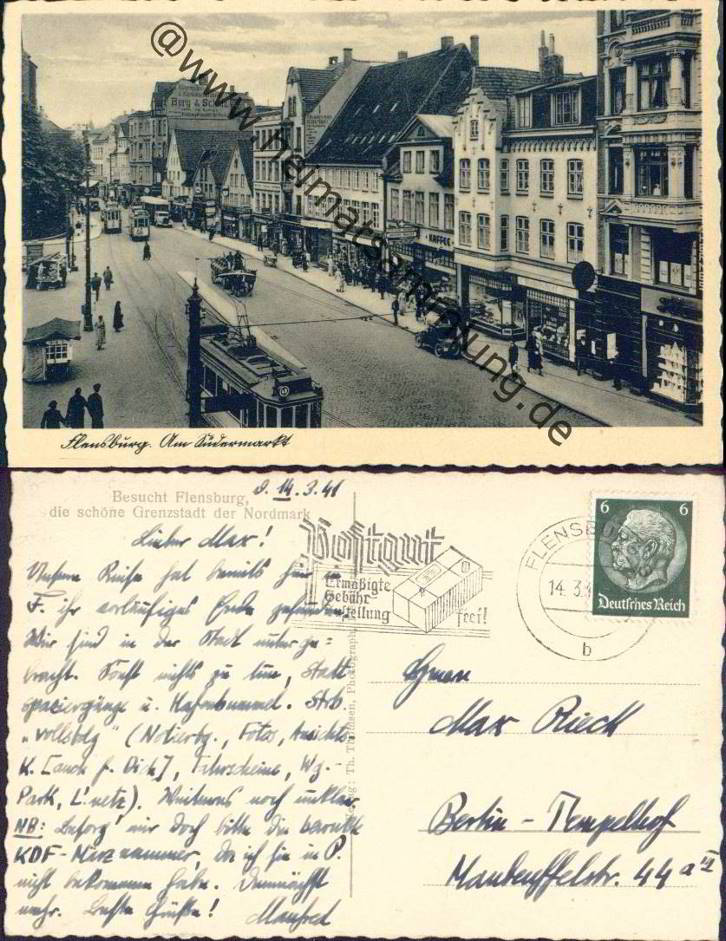 Berg &
KAFFEE
www.heimatsammlung.de
Flensburg. Am Südermarkt
Besucht Flensburg,
die schöne Grenzstadt der Nordmark
d. 14.3.41
Lieber Max!
Unsere Reise hat bereits hier in
F. ihr vorläufiges Ende gefunden
Wir sind in der Stadt unterge=
bracht. Sonst nichts zu tun, statt
Spaziergänge u. Hafenbummel. Str.b.
"vollständig" (Notierbg., Fotos, Ansichts-
K. [auch f. Dich], Fahrscheine, Wg.-
Park, L'netz). Weiteres noch unklar.
NB: Besorg' mir doch bitte die
KDF-Märznummer, da ich sie in P.
nicht bekommen habe. Demnächst
mehr. Beste Grüße! Manfred
Postgut
Ermäßigte
Gebühr
Zustellung frei!
FLENSBURG
14.3.
b
6 6
Deutsches Reich
Herrn
Max Rieck
Berlin-Tempelhof
Manteuffelstr. 44 a IV
Th. Thomsen, Photograph